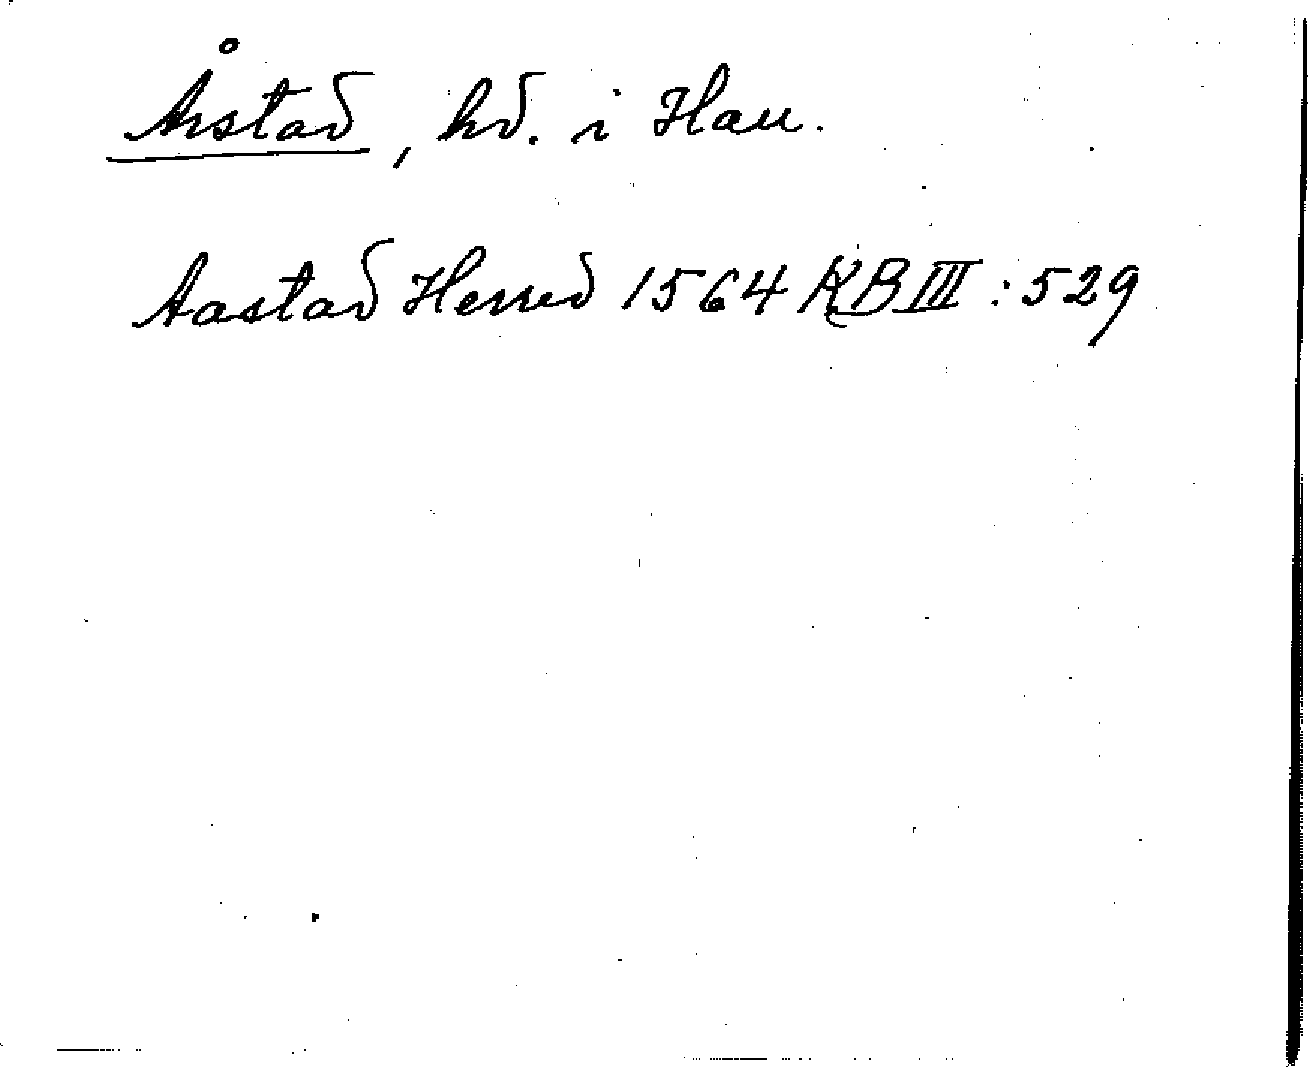 Årstad, hd. i Hall.
Aastad Herred 1564 KB III : 529